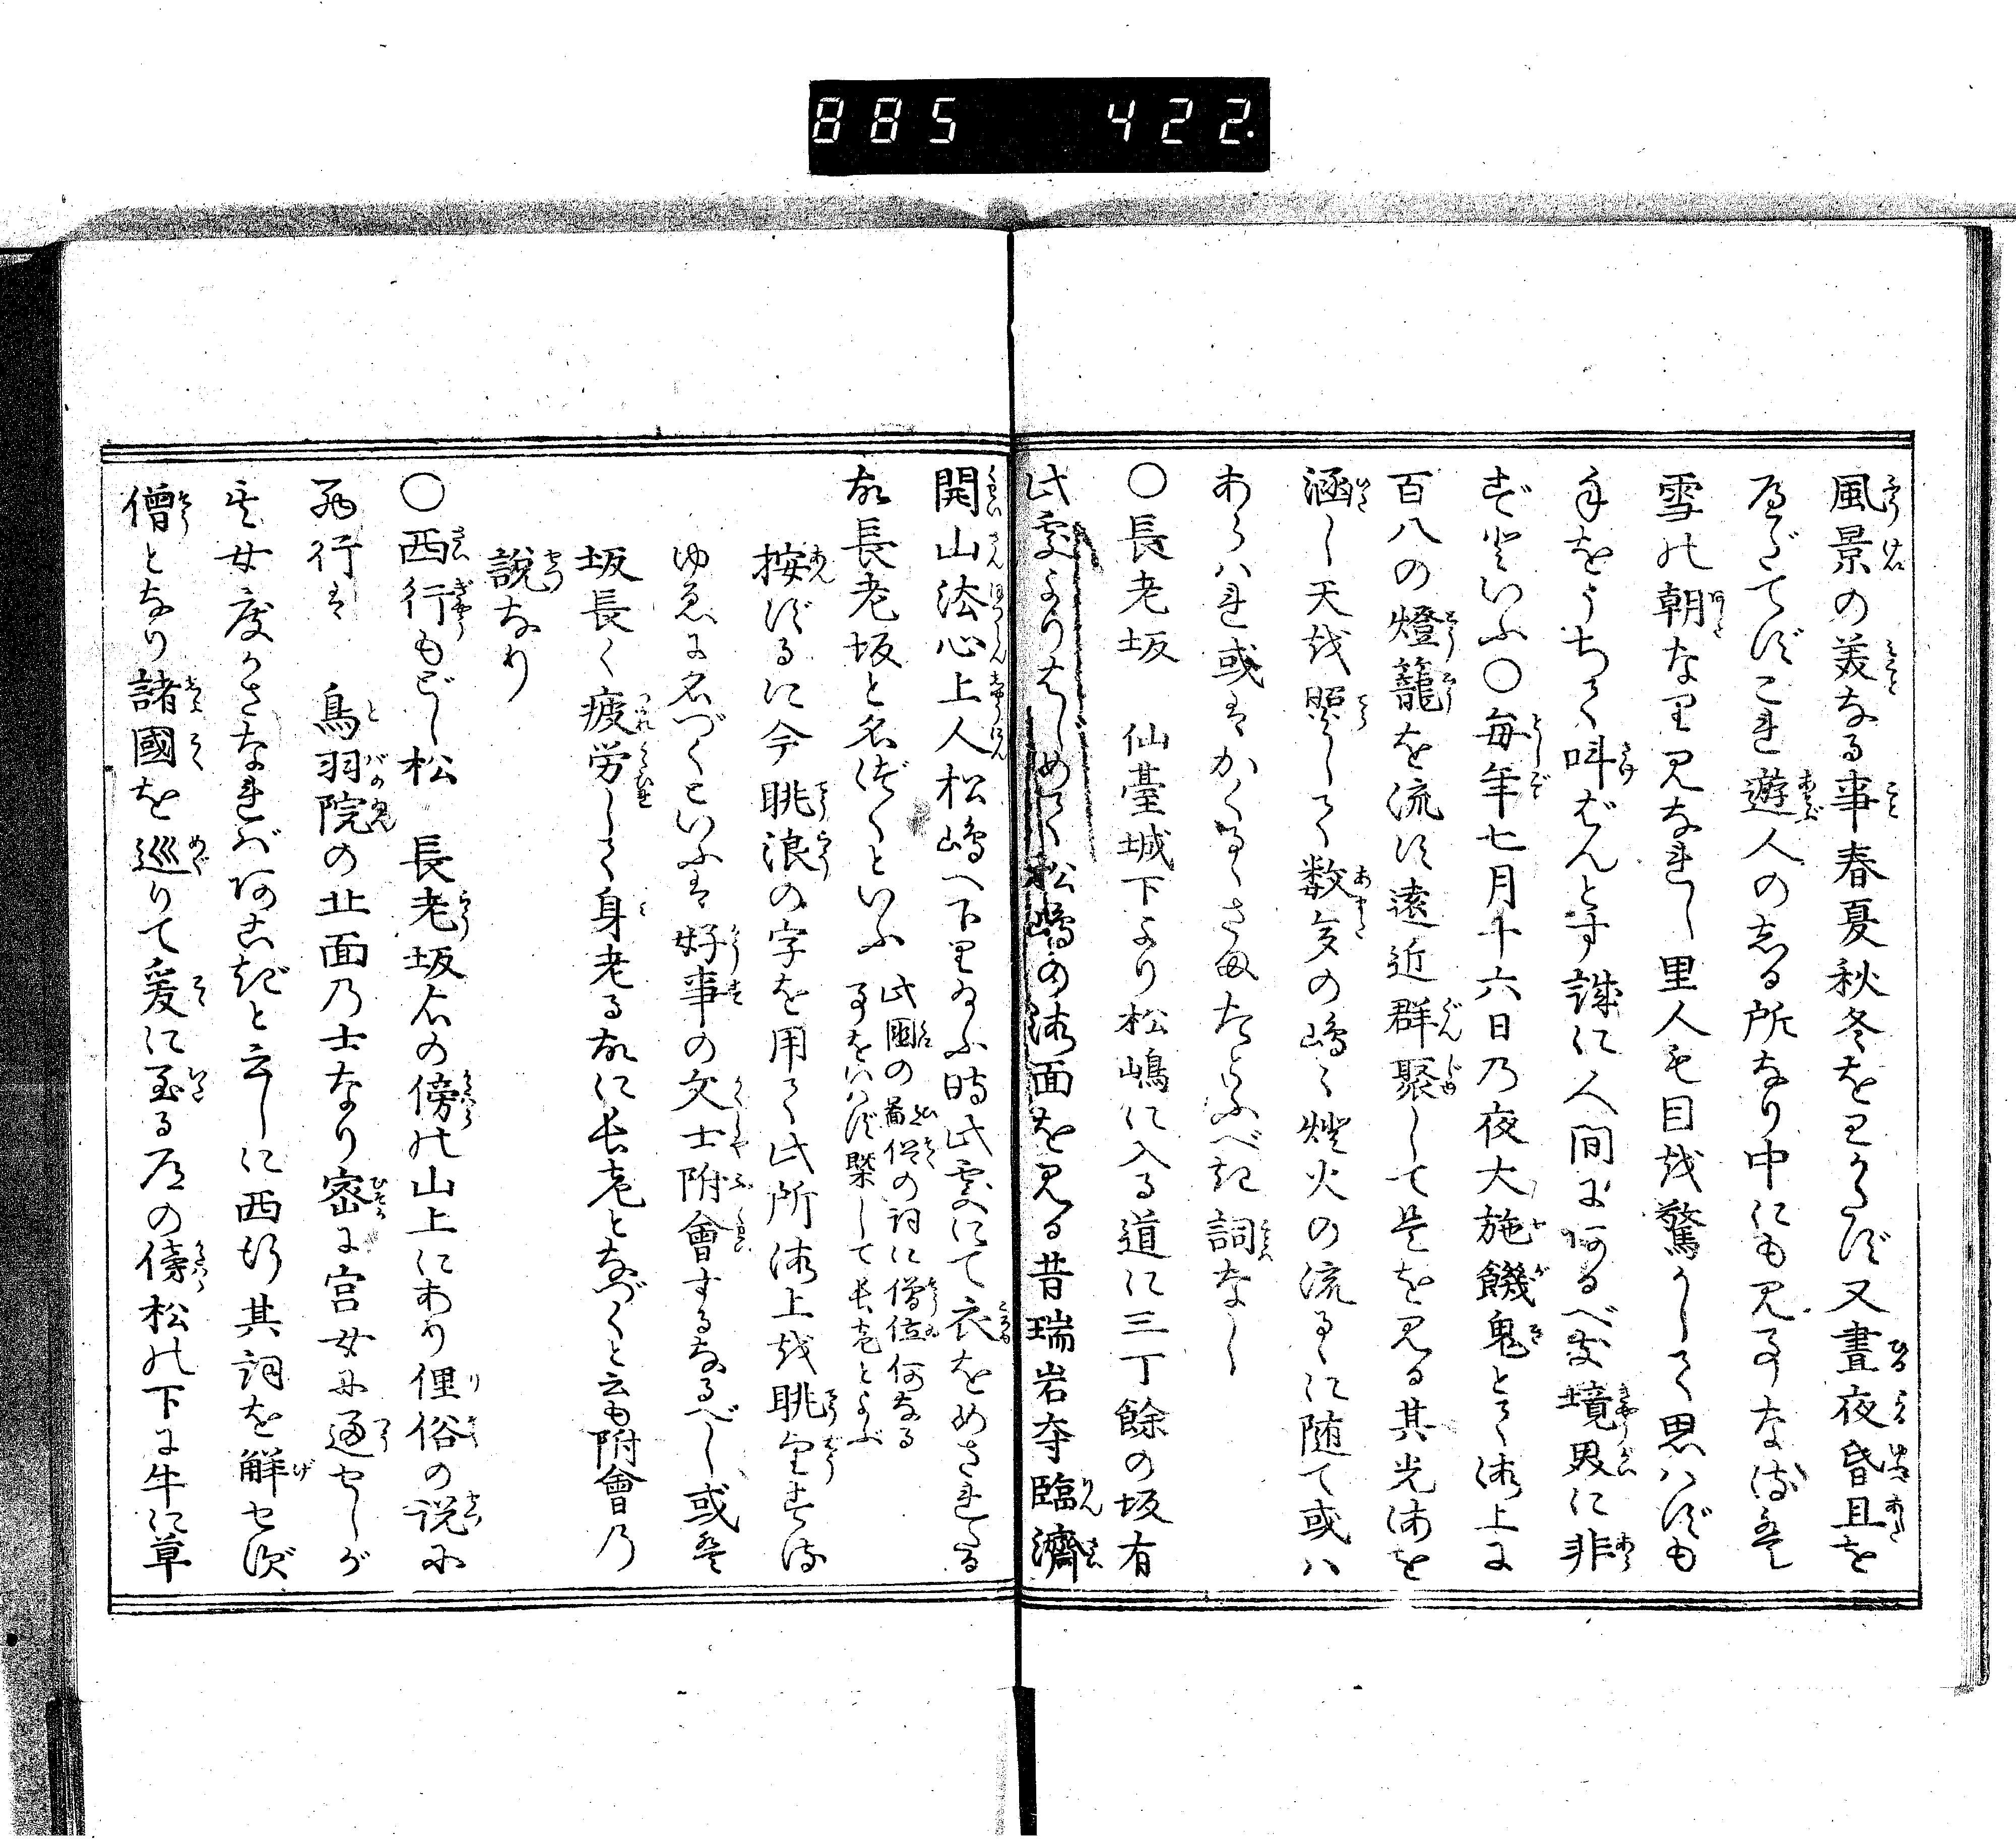 885 422.
風景の美なる事春夏秋冬をわかたず又晝夜昏旦を
へだてずこれ遊人のしる所なり中にも見事なるは
雪の朝なり見なれし里人も目を驚かして思はずも
手をうちて叫ばんとす誠に人間にあるべき境界に非
ずといふ〇毎年七月十六日の夜大施餓鬼とて海上に
百八の燈籠を流す遠近群聚して是を見る其光海を
涵し天を照らして数多の嶋〻燈火の流るゝに随て或ハ
あらハれ或はかくるゝさまたとふべき詞なし
〇長老坂 仙臺城下より松嶋に入る道に三丁餘の坂有
此處よりはじめて松嶋の海面を見る昔瑞岩寺臨濟
開山法心上人松嶋へ下り給ふ時此處にて衣をめされたる
故長老坂と名づくといふ 此國の鄙俗の詞に僧位何なる
事をいハず槩して長老とよぶ
按ずるに今眺浪の字を用て此所海上を眺望する
ゆゑに名づくといふは好事の文士附會するなるべし或は
坂長く疲労して身老る故に長老となづくと云も附會の
説なり
〇西行もどし松 長老坂の傍の山上にあり俚俗の説に
西行は 鳥羽院の北面の士なり密に宮女に通せしが
其女度かさなればあこぎと云しに西行其詞を解セず
僧となり諸國を巡りて爰に至る道の傍松の下に牛に草